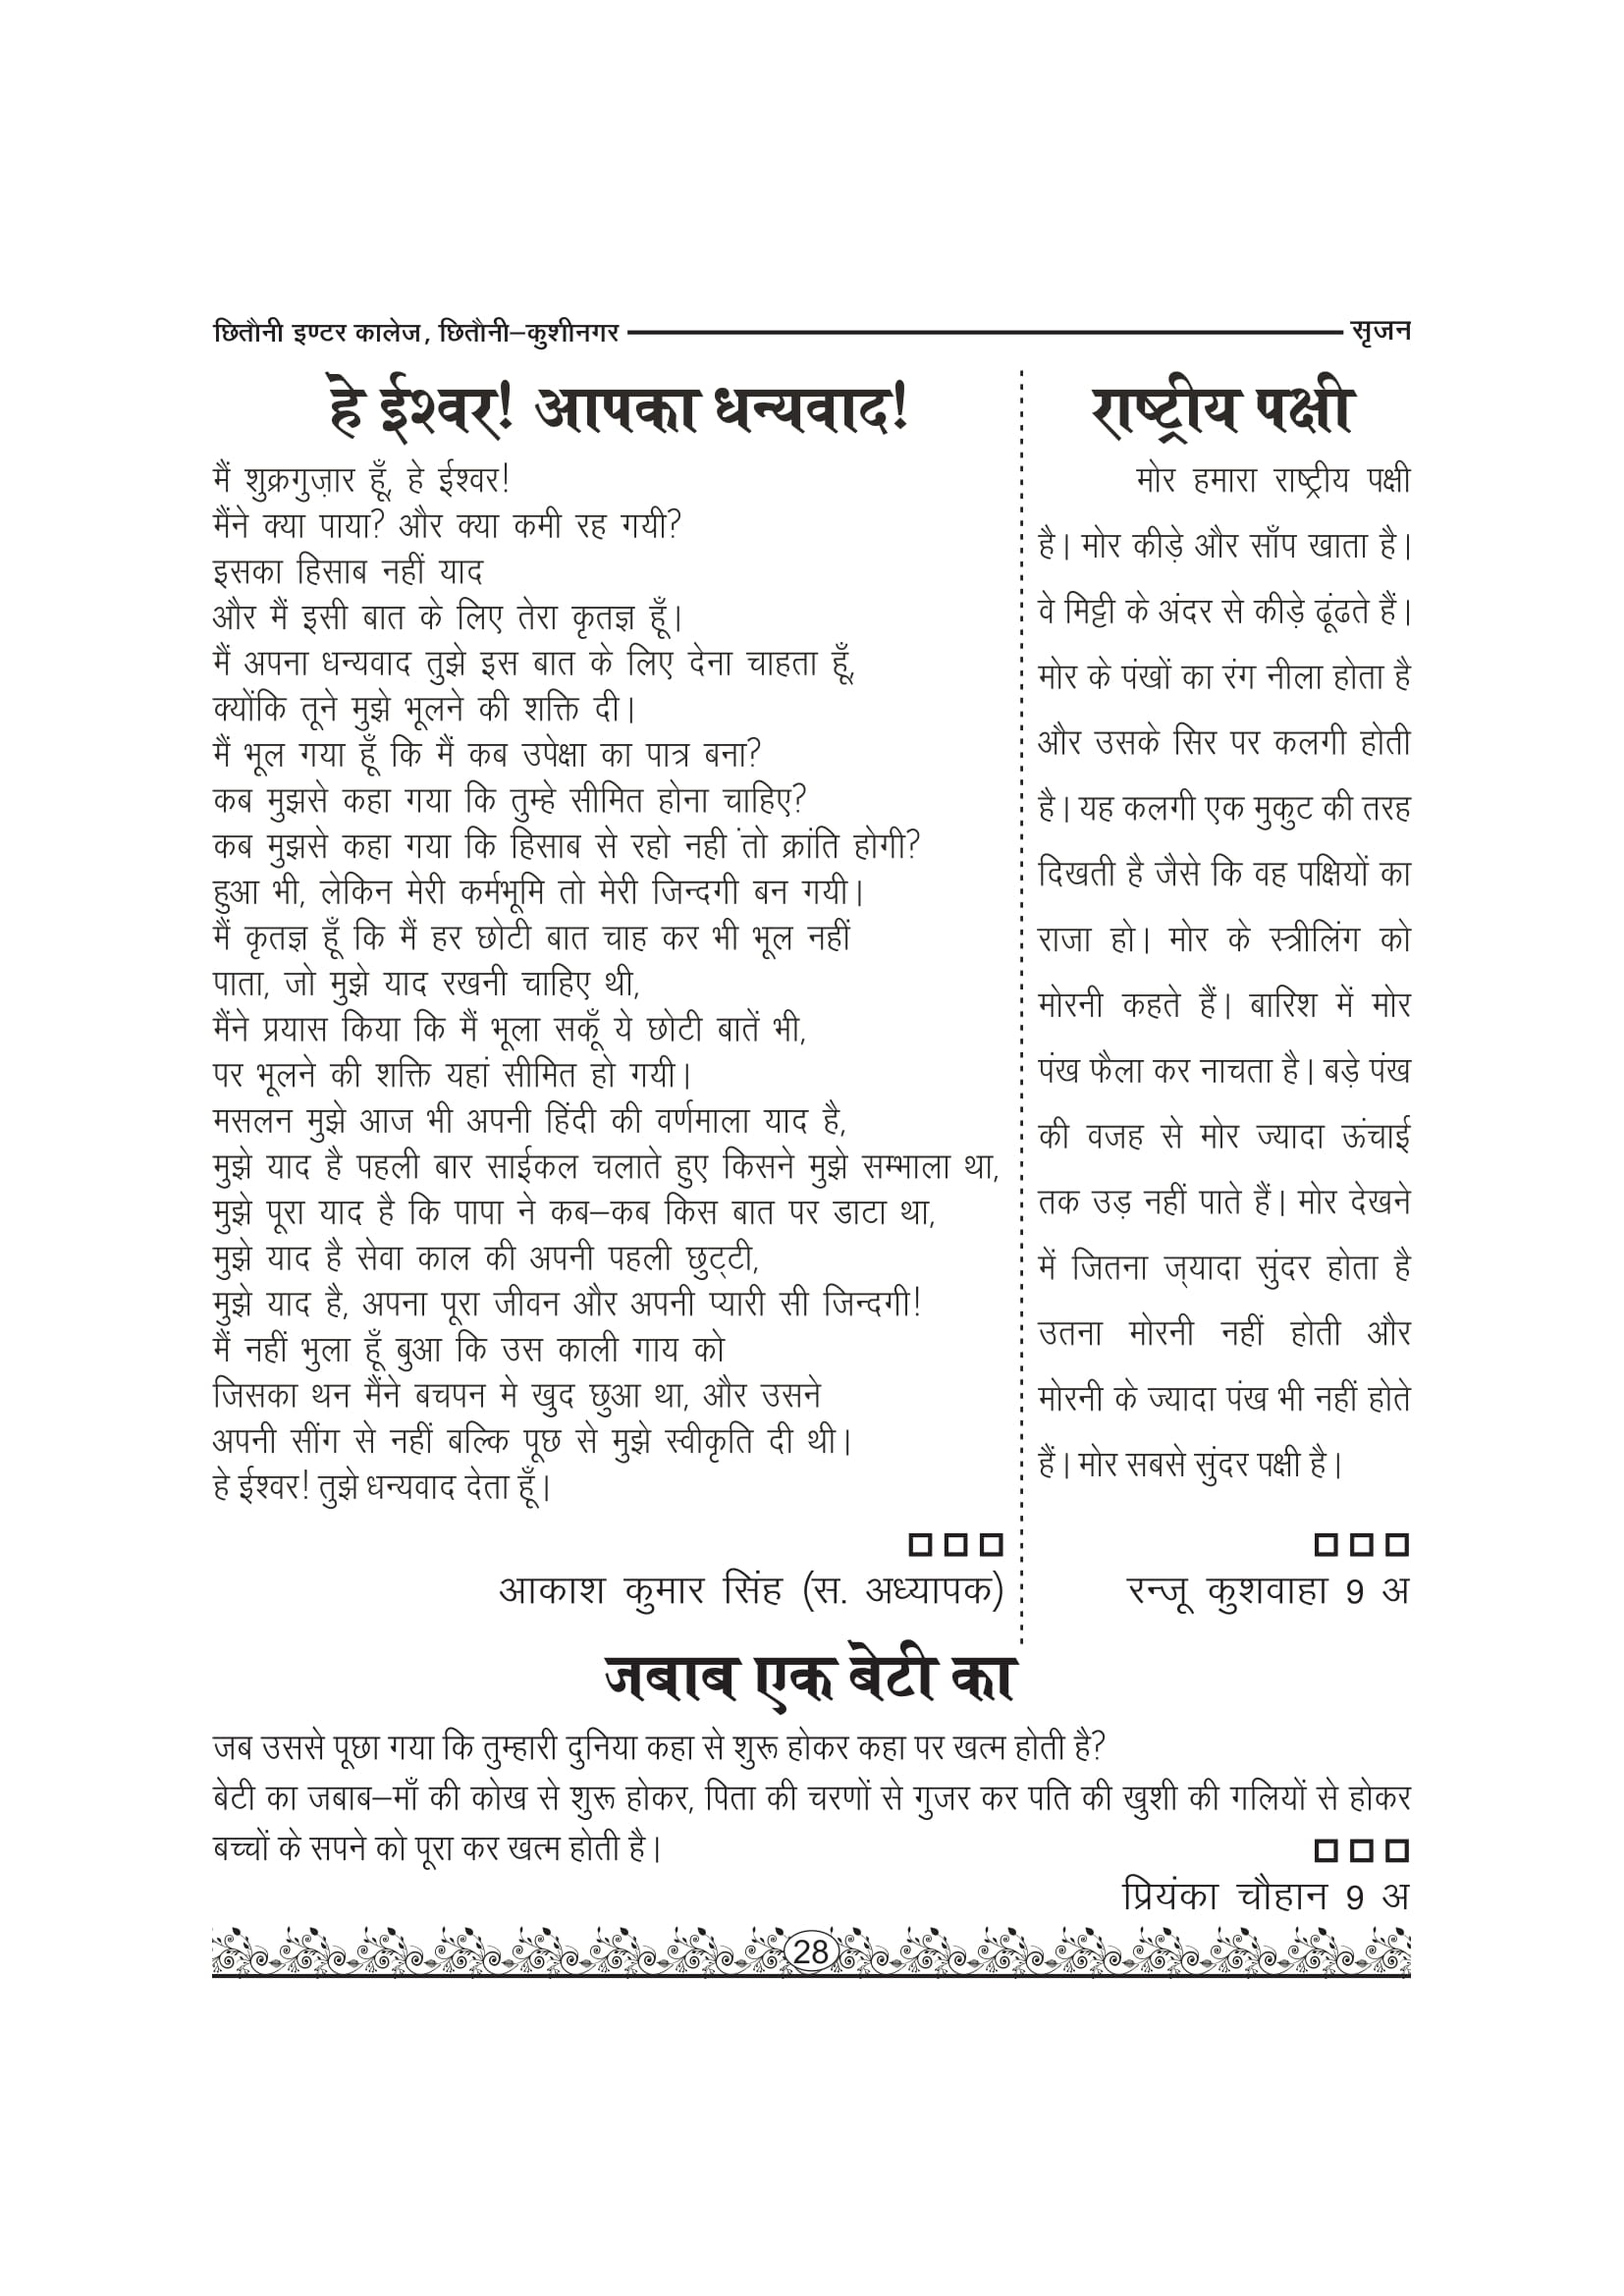 छितौनी इण्टर कालेज, छितौनी–कुशीनगर
सृजन
हे ईश्वर! आपका धन्यवाद!
मैं शुक्रगुज़ार हूँ, हे ईश्वर!
मैंने क्या पाया? और क्या कमी रह गयी?
इसका हिसाब नहीं याद
और मैं इसी बात के लिए तेरा कृतज्ञ हूँ।
मैं अपना धन्यवाद तुझे इस बात के लिए देना चाहता हूँ,
क्योंकि तूने मुझे भूलने की शक्ति दी।
मैं भूल गया हूँ कि मैं कब उपेक्षा का पात्र बना?
कब मुझसे कहा गया कि तुम्हे सीमित होना चाहिए?
कब मुझसे कहा गया कि हिसाब से रहो नहीं तो क्रांति होगी?
हुआ भी, लेकिन मेरी कर्मभूमि तो मेरी जिन्दगी बन गयी।
मैं कृतज्ञ हूँ कि मैं हर छोटी बात चाह कर भी भूल नहीं
पाता, जो मुझे याद रखनी चाहिए थी,
मैंने प्रयास किया कि मैं भूला सकूँ ये छोटी बातें भी,
पर भूलने की शक्ति यहां सीमित हो गयी।
मसलन मुझे आज भी अपनी हिंदी की वर्णमाला याद है,
मुझे याद है पहली बार साईकल चलाते हुए किसने मुझे सम्भाला था,
मुझे पूरा याद है कि पापा ने कब–कब किस बात पर डाटा था,
मुझे याद है सेवा काल की अपनी पहली छुट्टी,
मुझे याद है, अपना पूरा जीवन और अपनी प्यारी सी जिन्दगी!
मैं नहीं भुला हूँ बुआ कि उस काली गाय को
जिसका थन मैंने बचपन मे खुद छुआ था, और उसने
अपनी सींग से नहीं बल्कि पूछ से मुझे स्वीकृति दी थी।
हे ईश्वर! तुझे धन्यवाद देता हूँ।
आकाश कुमार सिंह (स. अध्यापक)
राष्ट्रीय पक्षी
मोर हमारा राष्ट्रीय पक्षी
है। मोर कीड़े और साँप खाता है।
वे मिट्टी के अंदर से कीड़े ढूंढते हैं।
मोर के पंखों का रंग नीला होता है
और उसके सिर पर कलगी होती
है। यह कलगी एक मुकुट की तरह
दिखती है जैसे कि वह पक्षियों का
राजा हो। मोर के स्त्रीलिंग को
मोरनी कहते हैं। बारिश में मोर
पंख फैला कर नाचता है। बड़े पंख
की वजह से मोर ज्यादा ऊंचाई
तक उड़ नहीं पाते हैं। मोर देखने
में जितना ज़्यादा सुंदर होता है
उतना मोरनी नहीं होती और
मोरनी के ज्यादा पंख भी नहीं होते
हैं। मोर सबसे सुंदर पक्षी है।
रन्जू कुशवाहा 9 अ
जबाब एक बेटी का
जब उससे पूछा गया कि तुम्हारी दुनिया कहा से शुरू होकर कहा पर खत्म होती है?
बेटी का जबाब–माँ की कोख से शुरू होकर, पिता की चरणों से गुजर कर पति की खुशी की गलियों से होकर
बच्चों के सपने को पूरा कर खत्म होती है।
प्रियंका चौहान 9 अ
28